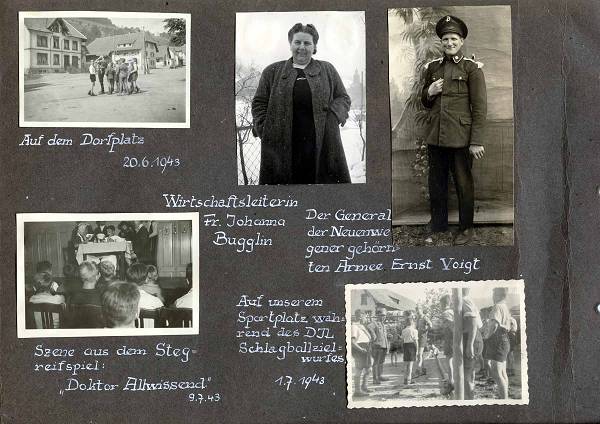 Auf dem Dorfplatz
20.6.1943
Wirtschaftsleiterin
Fr. Johanna
Bugglin
Der General
der Neuenwe
gener gehörn
ten Armee Ernst Voigt
Szene aus dem Steg-
reifspiel:
"Doktor Allwissend"
9.7.43
Auf unserem
Sportplatz wäh-
rend des DJL
Schlagballziel-
wurfes
1.7.1943